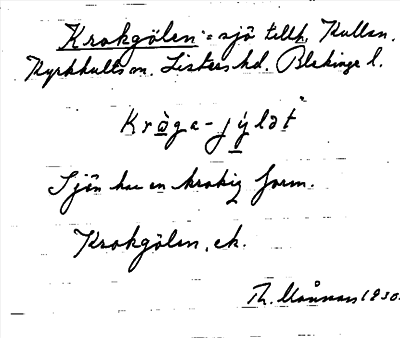 Krokgölen = sjö tillh. Kullen.
Kyrkhults sn. Listers hd. Blekinge l.
Kròga-jýlǝt
Sjön har en krokig form.
Krokgölen, ek.
Th. Månsson 1930.